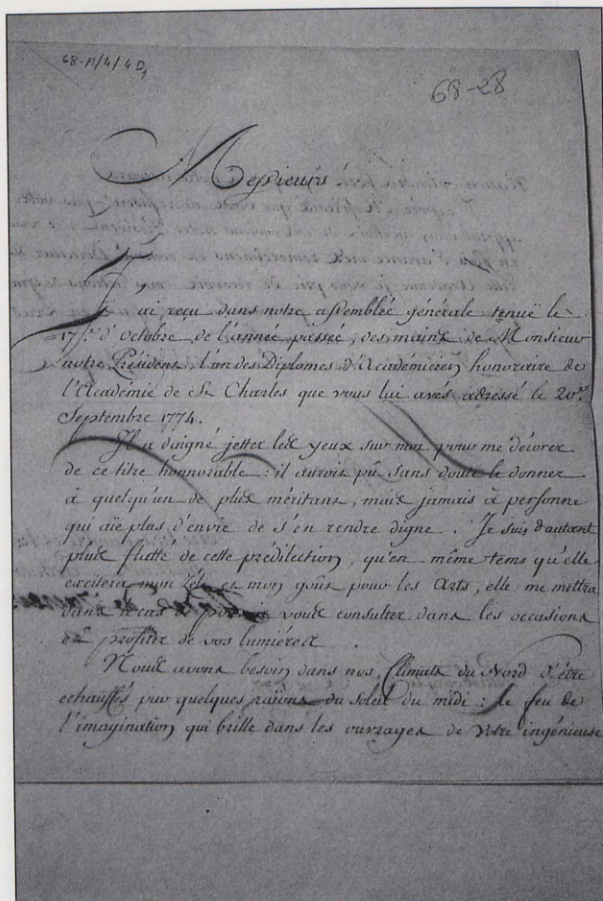 68-28
Messieurs
J'ai reçu dans notre assemblée générale tenuë le
17.e d'Octobre de l'année passée, des mains de Monsieur
notre Président, l'un des Diplomes d'Académicien honoraire de
l'Académie de St. Charles que vous lui avés adressé le 20.e
Septembre 1774.
Il a daigné jetter les yeux sur moi pour me décorer
de ce titre honnorable : il auroit pû sans doute le donner
à quelqu'un de plus méritant, mais jamais à personne
qui aïe plus d'envie de s'en rendre digne. Je suis d'autant
plus flatté de cette prédilection, qu'en même tems qu'elle
excitera mon zèle et mon goût pour les Arts, elle me mettra
dans le cas de pouvoir vous consulter dans les occasions
et profiter de vos lumières.
Nous avons besoin dans nos Climats du Nord d'être
echauffés par quelques raïons du soleil du midi : le feu de
l'imagination qui brille dans les ouvrages de Votre ingénieuse